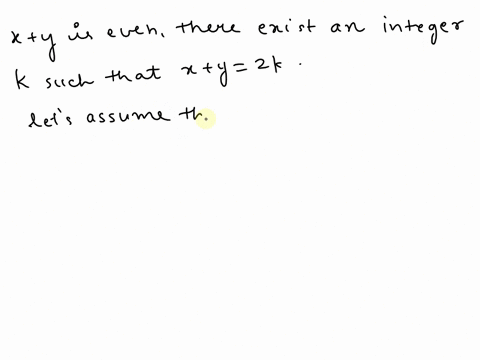 x+y is even, there exist an integer
k such that x+y=2k.
let's assume th